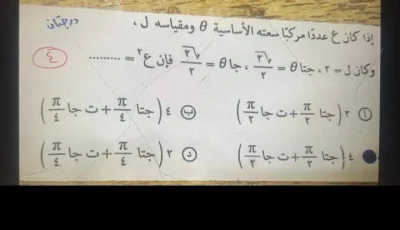 درجتان
إذا كان ع عددًا مركبًا سعته الأساسية θ ومقياسه ل ،
٤
وكان ل = ٢ ، جتا θ = √٢/٢ ، جا θ = √٢/٢ فإن ع٢ = .........
أ ٢ (جتا π/٢ + ت جا π/٢) ب ٤ (جتا π/٤ + ت جا π/٤)
٤ (جتا π/٢ + ت جا π/٢) د ٢ (جتا π/٤ + ت جا π/٤)